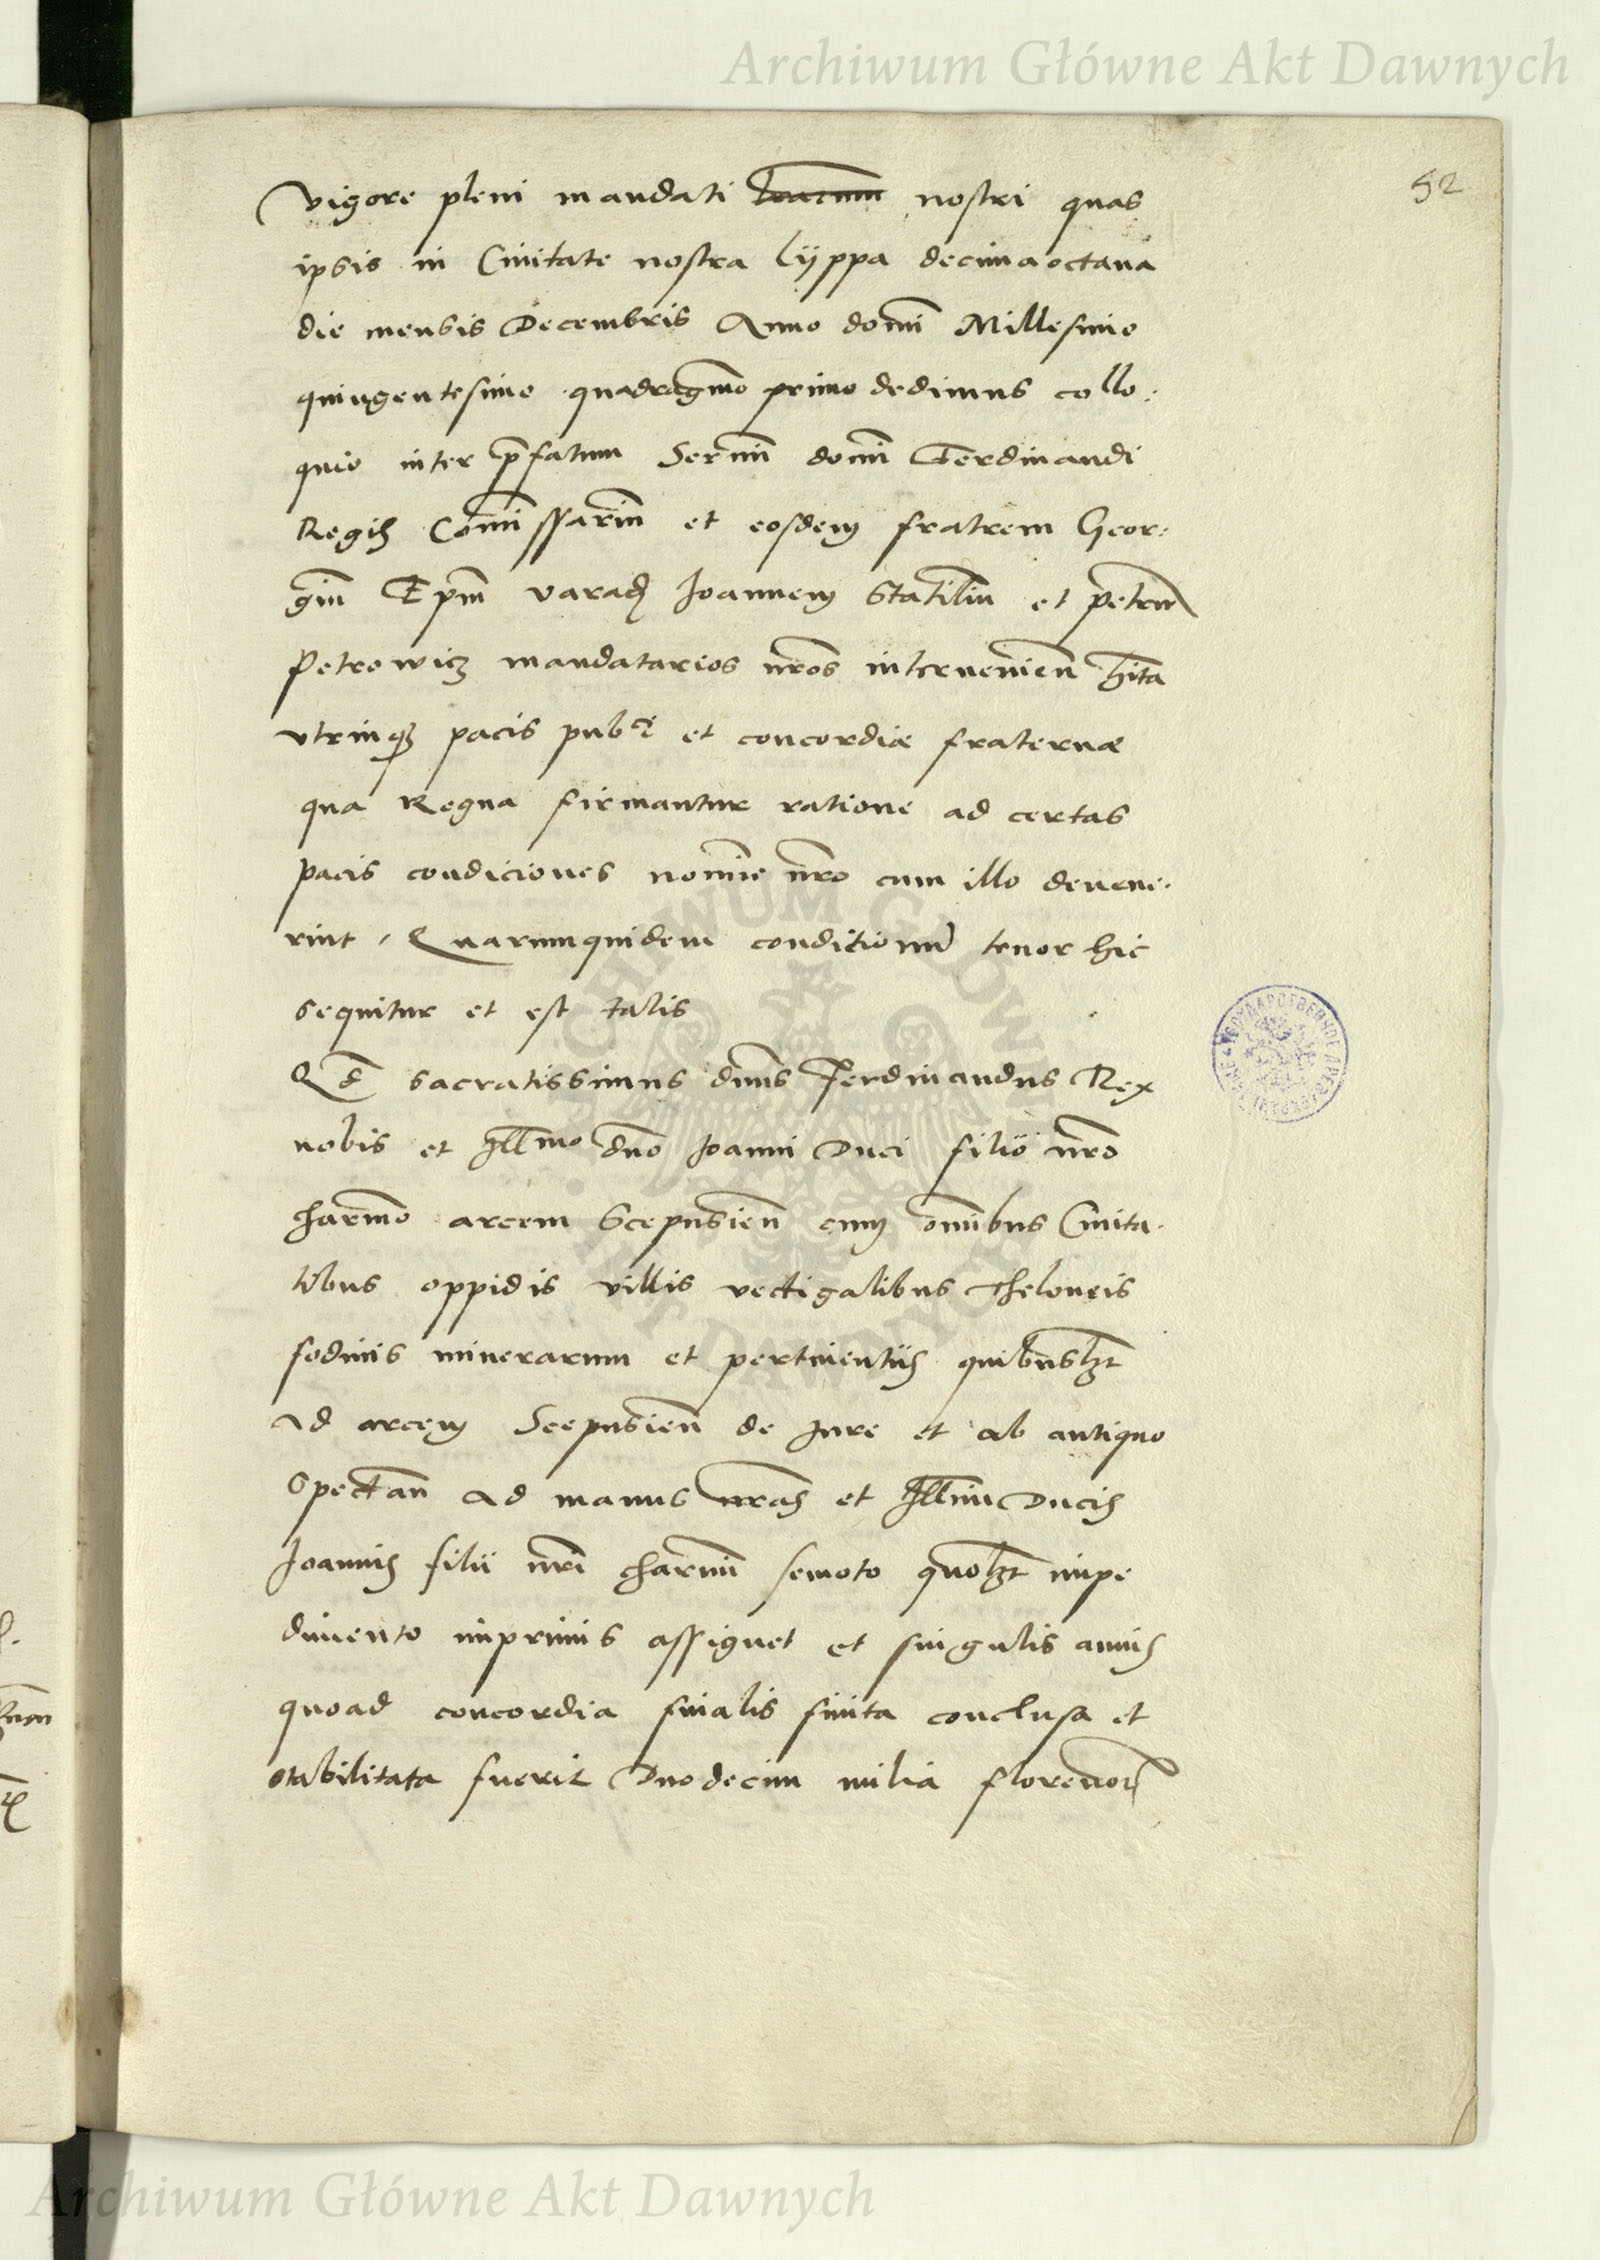 Archiwum Główne Akt Dawnych
52
vigore pleni mandati nostri quas
ipsis in Ciuitate nostra Lÿppa decimaoctaua
die mensis Decembris Anno domi Millesimo
quingentesimo quadragmo primo dedimus collo:
quio inter pfatum Sermi domi Ferdinandi
Regis Comissarim et eosdem fratrem Geor:
gim Epm varad Joannem Statilim et petrum
Petrowicz mandatarios nros interuenien hita
vtrinq pacis pubci et concordiæ fraternæ
qua Regna firmantur ratione ad certas
pacis condiciones nomie nro cum illo deuene.
rint, Quarumquidem conditionum tenor hic
sequitur et est talis
Qd sacratissimus dnus Ferdinandus Rex
nobis et Illmo dno Joanni Duci filio nro
charmo arcem Scepusien cum omibus Ciuita.
tibus oppidis villis vectigalibus theloneis
fodinis minerarum et pertinentijs quibuslzt
ad arcem Scepusien de Jure et ab antiquo
spectan ad manus nras et Illmi Ducis
Joannis filii nri charmi semoto quolzt impe
dimento imprimis assignet et singulis annis
quoad concordia finalis finita conclusa et
stabilitata fuerit Duodecim milia florenor
Archiwum Główne Akt Dawnych